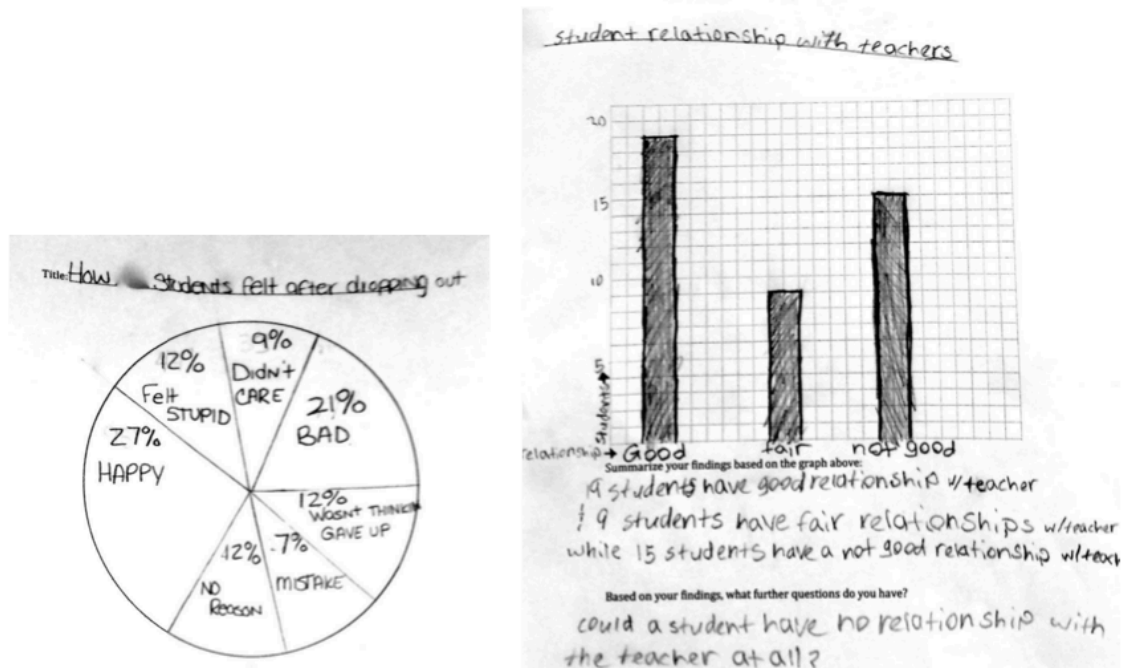 Title: How Students felt after dropping out
9%
Didn't
CARE
12%
Felt
STUPID
21%
BAD
27%
HAPPY
12%
WASN'T THINKIN
GAVE UP
7%
MISTAKE
12%
NO
REASON
student relationship with teachers
20
15
10
5
Students
relationship → Good fair not good
Summarize your findings based on the graph above:
19 students have good relationship w/teacher
9 students have fair relationships w/teacher
while 15 students have a not good relationship w/teach
Based on your findings, what further questions do you have?
could a student have no relationship with
the teacher at all?